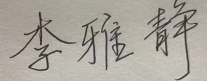 李雅静